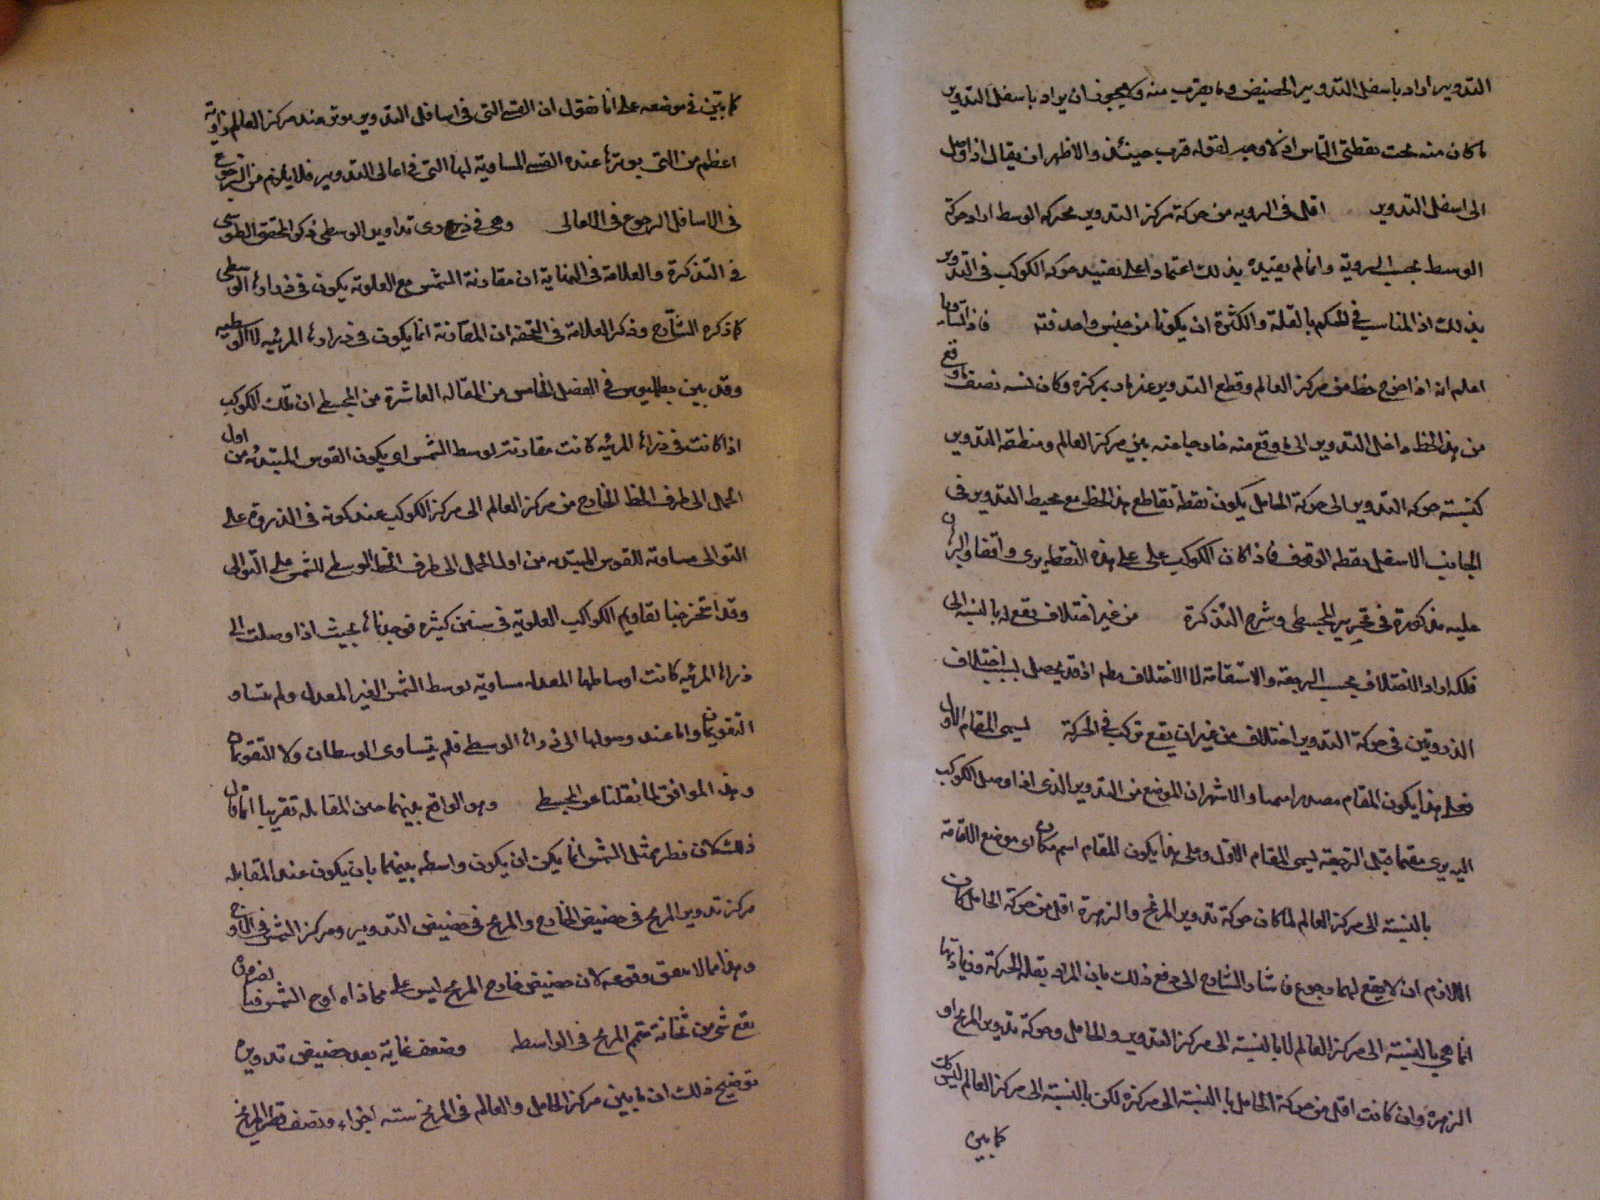 التدوير اراد باسفل التدوير الحضيض وما يقرب منه ولا يجوز ان يراد باسفل التدوير
ما كان منه تحت نقطتي التماس اذ لا وجه لقوله قرب حينئذ والاظهر ان يقال اذا وصل
الى اسفل التدوير اقل في الرويه من حركة مركز التدوير بحركه الوسط اراد حركة
الوسط بحسب الروية وانما لم يقيده بذلك اعتمادا على تقييد حركه الكوكب في التدوير
بذلك اذ المناسب في الحكم بالقلة والكثرة ان يكونا من جنس واحد فاذا تساويا
اعلم انه اذا اخرج خط من مركز العالم وقطع التدوير غير مار بمركزه وكان نسبه نصف ما وقع
من هذا الخط داخل التدوير الى ما وقع منه خارجا عنه بين مركز العالم ومنطقه التدوير
كنسبته حركه التدوير الى حركة الحامل يكون نقطة تقاطع هذا الخط مع محيط التدوير في
الجانب الاسفل نقطه الوقوف فاذا كان الكوكب على هذه النقطه يرى واقفا والبرهان
عليه مذكورة في تحرير المجسطي وشرح التذكرة من غير اختلاف يقع له بالنسبه الى
فلكه اراد الاختلاف بحسب الرجعه والاستقامة لا الاختلاف مطلقا اذ قد يحصل بسبب اختلاف
الذروتين في حركة التدوير اختلاف من غير ان يقع تركب في الحركة يسمى المقام الاول
فعلى هذا يكون المقام مصدرا ميميا والاشهر ان الموضع من التدوير الذي اذا وصل الكوكب
اليه يرى مقيما قبل الرجعه يسمى المقام الاول وعلى هذا يكون المقام اسم مكان اى موضع الاقامة
بالنسبة الى مركز العالم لما كان حركة تدوير المريخ والزهرة اقل من حركة الحامل كان
اللازم ان لا يقع لهما رجوع فاشار الشارح الى دفع ذلك بان المراد بقله الحركة وزيادتها
انما هي بالنسبة الى مركز العالم لا بالنسبة الى مركز التدوير والحامل وحركة تدوير المريخ او
الزهرة وان كانت اقل من حركة الحامل بالنسبة الى مركزه لكن بالنسبة الى مركز العالم ليس كذلك
كما بين
كما بين في موضعه على انا نقول ان القسي التي في اسافل التدوير يوتر عند مركز العالم زاوية
اعظم من التي يوترها عنده القسي المساوية لها التي في اعالى التدوير فلا يلزم من الرجوع
في الاسافل الرجوع في الاعالى وهي في ذرى تداوير الوسطى ذكر المحقق الطوسي
في التذكرة والعلامة في النهاية ان مقارنة الشمس مع العلوية يكون في ذراها الوسطى
كما ذكره الشارح وذكر العلامة في التحفه ان المقارنة انما يكون في ذراها المرئيه لا الوسطيه
وقد بين بطلميوس في الفصل الخامس من المقاله العاشرة من المجسطي ان تلك الكواكب
اذا كانت في ذراها المرئيه كانت مقارنة لوسط الشمس اى يكون القوس المبتدئه من اول
الحمل الى طرف الخط الخارج من مركز العالم الى مركز الكوكب عند كونه في الذروة على
التوالى مساوية للقوس المبتدئه من اول الحمل الى طرف الخط الوسطى للشمس على التوالى
وقد استخرجنا تقاويم الكواكب العلوية في سنين كثيره فوجدناها بحيث اذا وصلت الى
ذراها المرئيه كانت اوساطها المعدله مساويه لوسط الشمس الغير المعدل ولم يتساو
التقويمان واما عند وصولها الى ذراها الوسطى فلم يتساوى الوسطان ولا التقويمان
وهذا الموافق لما نقلنا عن المجسطي وهو الواقع بينهما حين المقابله تقريبا انما قال
ذلك لان قطر ممثل الشمس انما يمكن ان يكون واسطه بينهما بان يكون عند المقابله
مركز تدوير المريخ في حضيض الخارج والمريخ في حضيض التدوير ومركز الشمس في الاوج
وهذا مما لا يتفق وقوعه لان حضيض خارج المريخ ليس على محاذاه اوج الشمس
يقع شئ من ثخانة متمم المريخ في الواسطه وضعف غاية بعد حضيض تدويره
توضيح ذلك ان ما بين مركز الحامل والعالم في المريخ سته اجزاء ونصف قطر المريخ